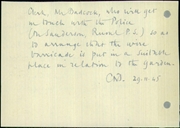 Dear Mr. Babcock, who will get
in touch with the Police
(Mr. Sanderson, Rural P.S.) so as
to arrange that the wire
barricade is put in a suitable
place in relation to the garden.
29.11.65